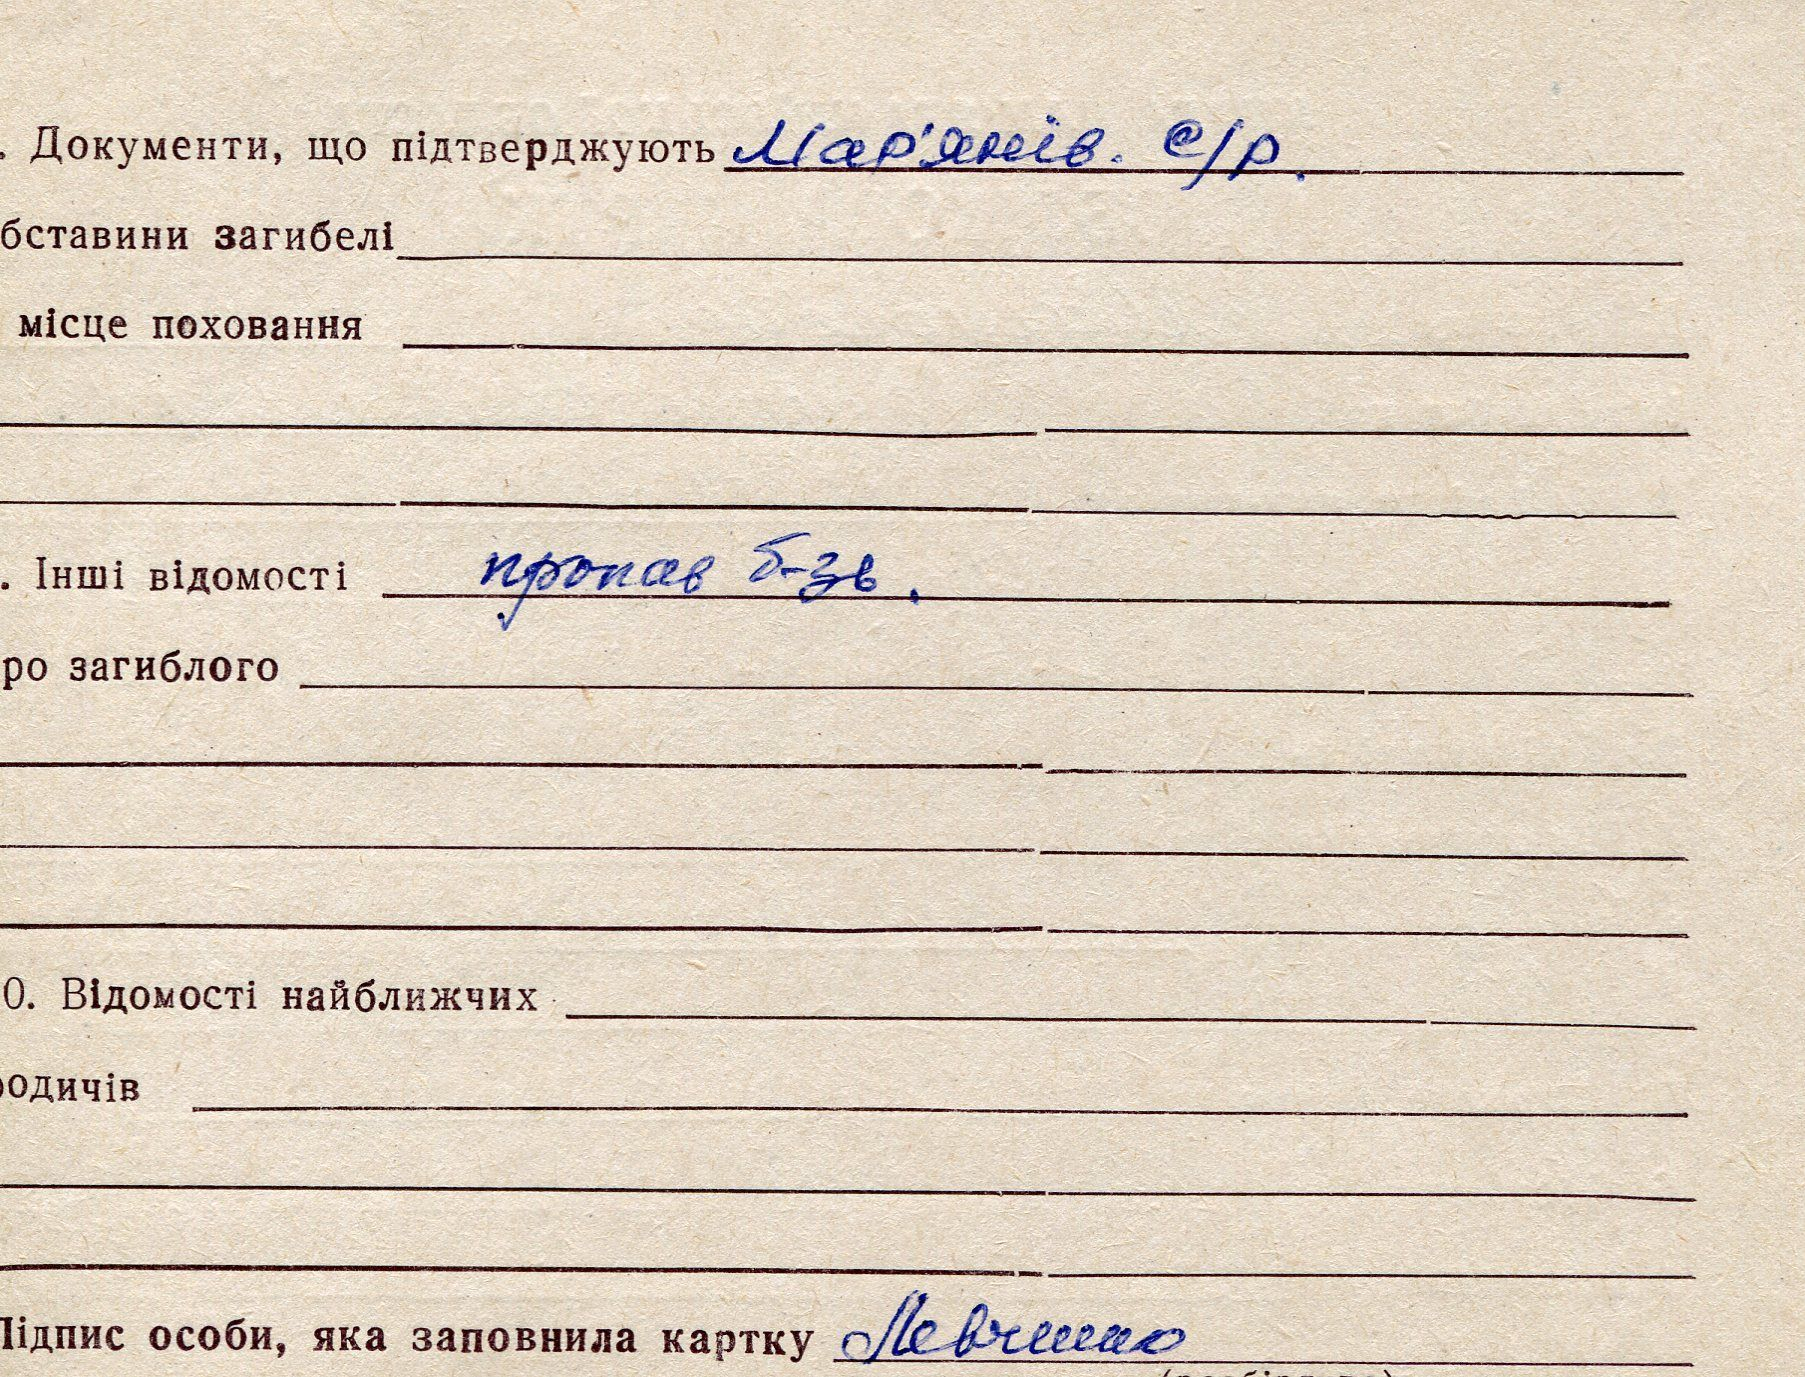 . Документи, що підтверджують Мар'янів. с/р.
бставини загибелі
місце поховання
. Інші відомості пропав б-зв.
ро загиблого
0. Відомості найближчих
родичів
Підпис особи, яка заповнила картку Левченко